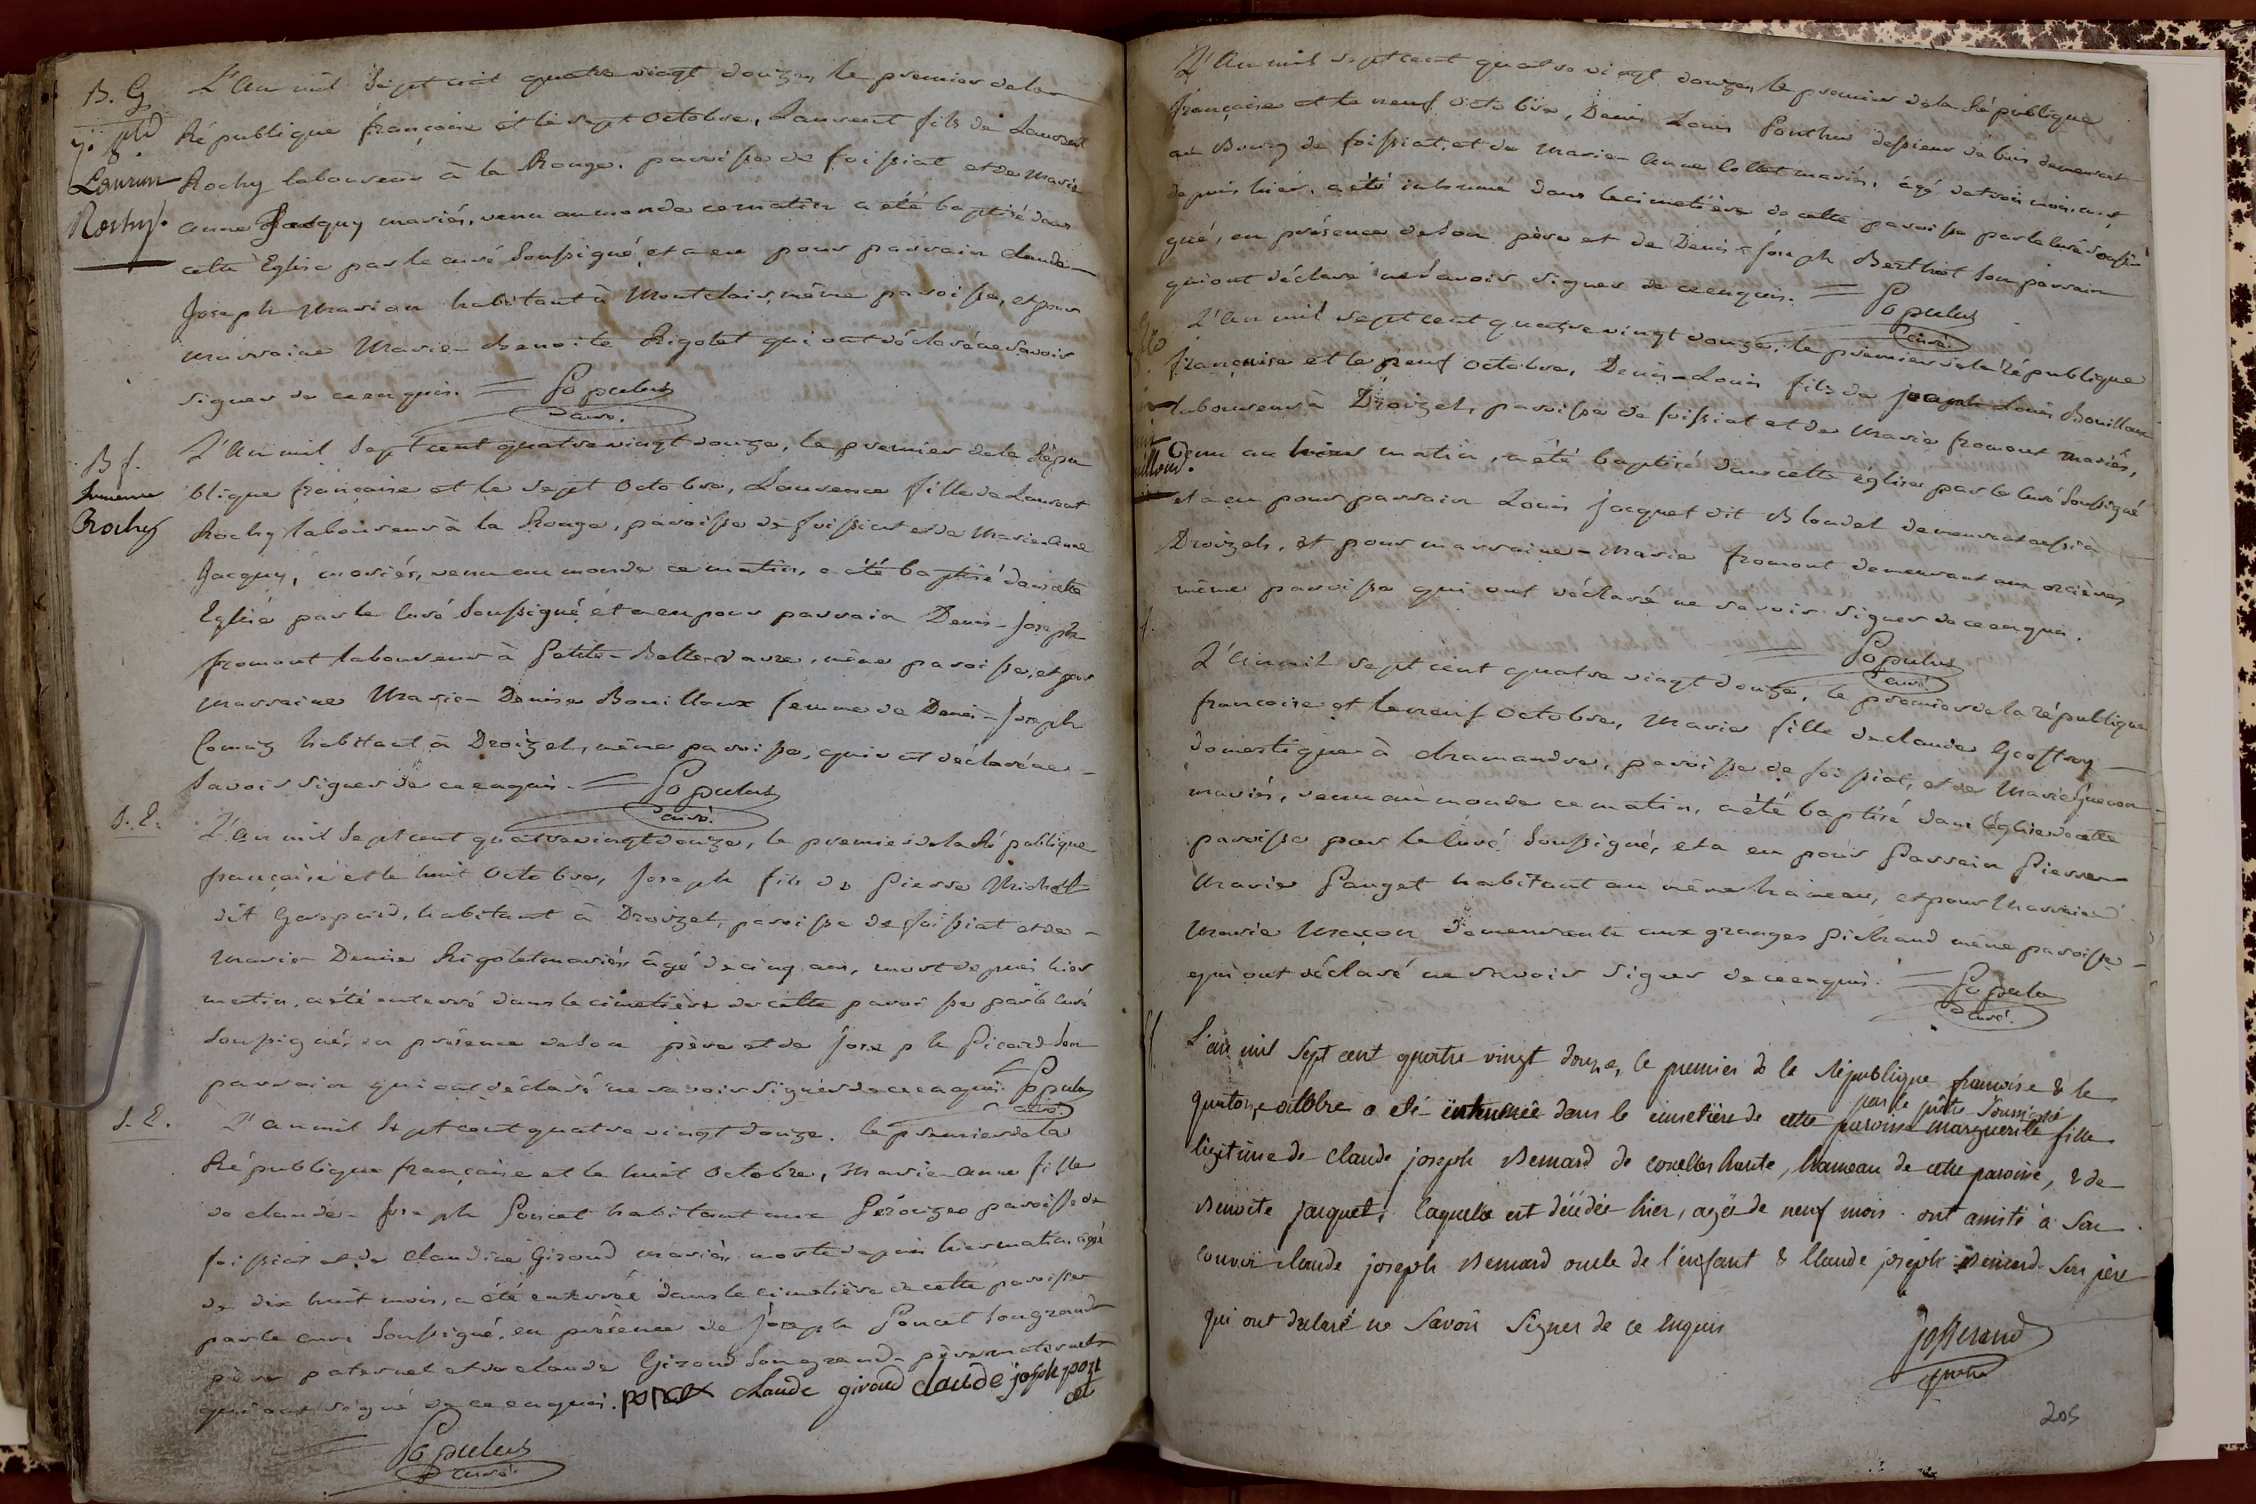 B. G
Laurent
Rochy.
L'An mil Sept cent quatre vingt douze, le premier de la
République françoise et le sept Octobre, Laurent fils de Laurent
Rochy laboureur à la Rouge, paroisse de foissiat et de Marie
anne Jacquy mariés, venu au monde ce matin a été baptisé dans
cette Eglise par le curé Soussigné, et a eu pour parrain Claude
Joseph Marion habitant à Montclair, même paroisse, et pour
marraine Marie-Benoite Rigolet qui ont déclaré ne savoir
signer de ce enquis. = Populus
curé.
B f.
Laurence
Rochy
L'An mil Sept cent quatre vingt douze, le premier de la Répu
blique françoise et le sept Octobre, Laurence fille de Laurent
Rochy laboureur à la Rouge, paroisse de foissiat et de Marie anne
Jacquy, mariés, venu au monde ce matin, a été baptisé dans cette
Eglise par le Curé Soussigné, et a eu pour parrain Denis-Joseph
fromont laboureur à Petite-Bellevavre, même paroisse, et pour
marraine Marie-Denise Bouilloux femme de Denis-Joseph
habitant à Droizel, même paroisse, qui ont déclaré ne
savoir signer de ce enquis. = Populus
curé.
S. E.
L'An mil Sept cent quatre vingt douze, le premier de la République
françoise et le huit Octobre, Joseph fils de Pierre Michel
dit Gaspard, habitant à Droizel, paroisse de foissiat et de
Marie-Denise Rigolet mariés, âgé de cinq ans, mort depuis hier
matin, a été enterré dans le cimetière de cette paroisse par le Curé
Soussigné, en présence de son père et de Joseph Picard son
parrain qui ont déclaré ne savoir signer de ce enquis. Populus
curé.
S. E.
L'an mil Sept cent quatre vingt douze, le premier de la
République françoise et le huit Octobre, Marie-Anne fille
de Claude-Joseph Poncet habitant aux Pérouzes paroisse de
foissiat et de Claudine Giroud mariés, morte depuis hier matin âgé
de dix huit mois, a été enterré dans le cimetière de cette paroisse
par le curé Soussigné, en présence de Joseph Poncet son grand
père paternel et de Claude Giroud son grand-père maternel
qui ont signé de ce enquis. poncet claude giroud claude joseph pon
cet
Populus
curé.
L'An mil sept cent quatre vingt douze, le premier de la République
françoise et le neuf Octobre, Denis Louis de buis demeurant
au Bourg de foissiat, et de Marie-Anne Collet mariés, âgé de trois mois, mort
depuis hier, a été inhumé dans le cimetière de cette paroisse par le Curé soussi
gné, en présence de son père et de Denis-Joseph Berthet son parrain
qui ont déclaré ne savoir signer de ce enquis. = Populus
curé.
L'An mil sept cent quatre vingt douze, le premier de la république
françoise et le neuf Octobre, Denis-Louis fils de Louis Bouilloux
laboureur à Droizel, paroisse de foissiat et de Marie fromont mariés,
venu au matin, a été baptisé dans cette église par le Curé Soussigné
et a eu pour parrain Louis Jacquet dit Blondel demeurant aussi à
Droizel, et pour marraine-Marie fromont demeurant aux orcières
même paroisse qui ont déclaré ne savoir signer de ce enquis.
Populus
curé.
L'An mil sept cent quatre vingt douze, le premier de la république
françoise et le neuf Octobre, Marie fille de Claude Geoffroy
domestique à Chamandre, paroisse de foissiat, et de Marie
mariés, venu au monde ce matin, a été baptisé dans l'église de cette
paroisse par le Curé Soussigné, et a eu pour Parrain Pierre
Marie Pauget habitant au même hameau, et pour Marraine
Marie Maçon demeurante aux granges Pichaud même paroisse
qui ont déclaré ne savoir signer de ce enquis. = Populus
curé.
L'an mil Sept cent quatre vingt douze, le premier de la République francoise & le
quatorze octobre a eté inhumée dans le cimetière de cette paroisse par le prêtre soussigné marguerite fille
legitime de claude joseph Bernard de conelles haute, hameau de cette paroisse, & de
Benoite jacquet, laquelle est décédée hier, agée de neuf mois. ont assisté à son
convoi claude joseph Bernard oncle de l'enfant & Claude joseph Bernard son père
qui ont declaré ne Savoir Signer de ce enquis
josserand
prêtre
205